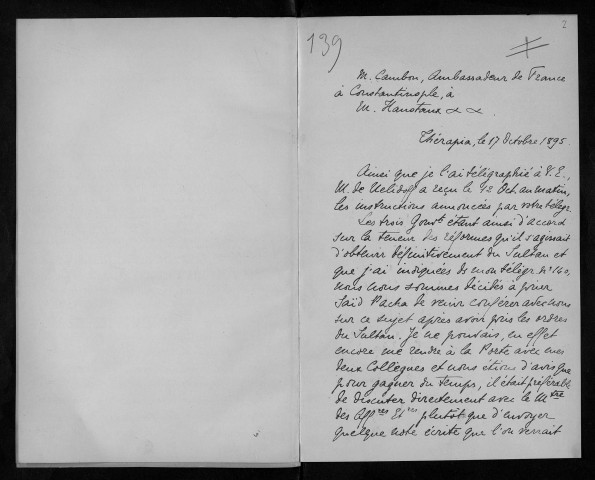 2
139
M. Cambon, Ambassadeur de France
à Constantinople, à
M. Hanotaux
Thérapia, le 17 Octobre 1895.
Ainsi que je l'ai télégraphié à V. E.,
M. de Nelidoff a reçu le 12 Oct. au matin,
les instructions annoncées par votre télégr.
Les trois Gouvts étant ainsi d'accord
sur la teneur des réformes qu'il s'agissait
d'obtenir définitivement du Sultan et
que j'ai indiquées ds mon télégr. n° 140,
nous nous sommes décidés à prier
Saïd Pacha de venir conférer avec nous
sur ce sujet après avoir pris les ordres
du Sultan. Je ne pouvais, en effet
encore me rendre à la Porte avec mes
deux Collègues et nous étions d'avis que
pour gagner du temps, il était préférable
de discuter directement avec le Mtre
des Affres Etres plutôt que d'envoyer
quelque note écrite que l'on verrait